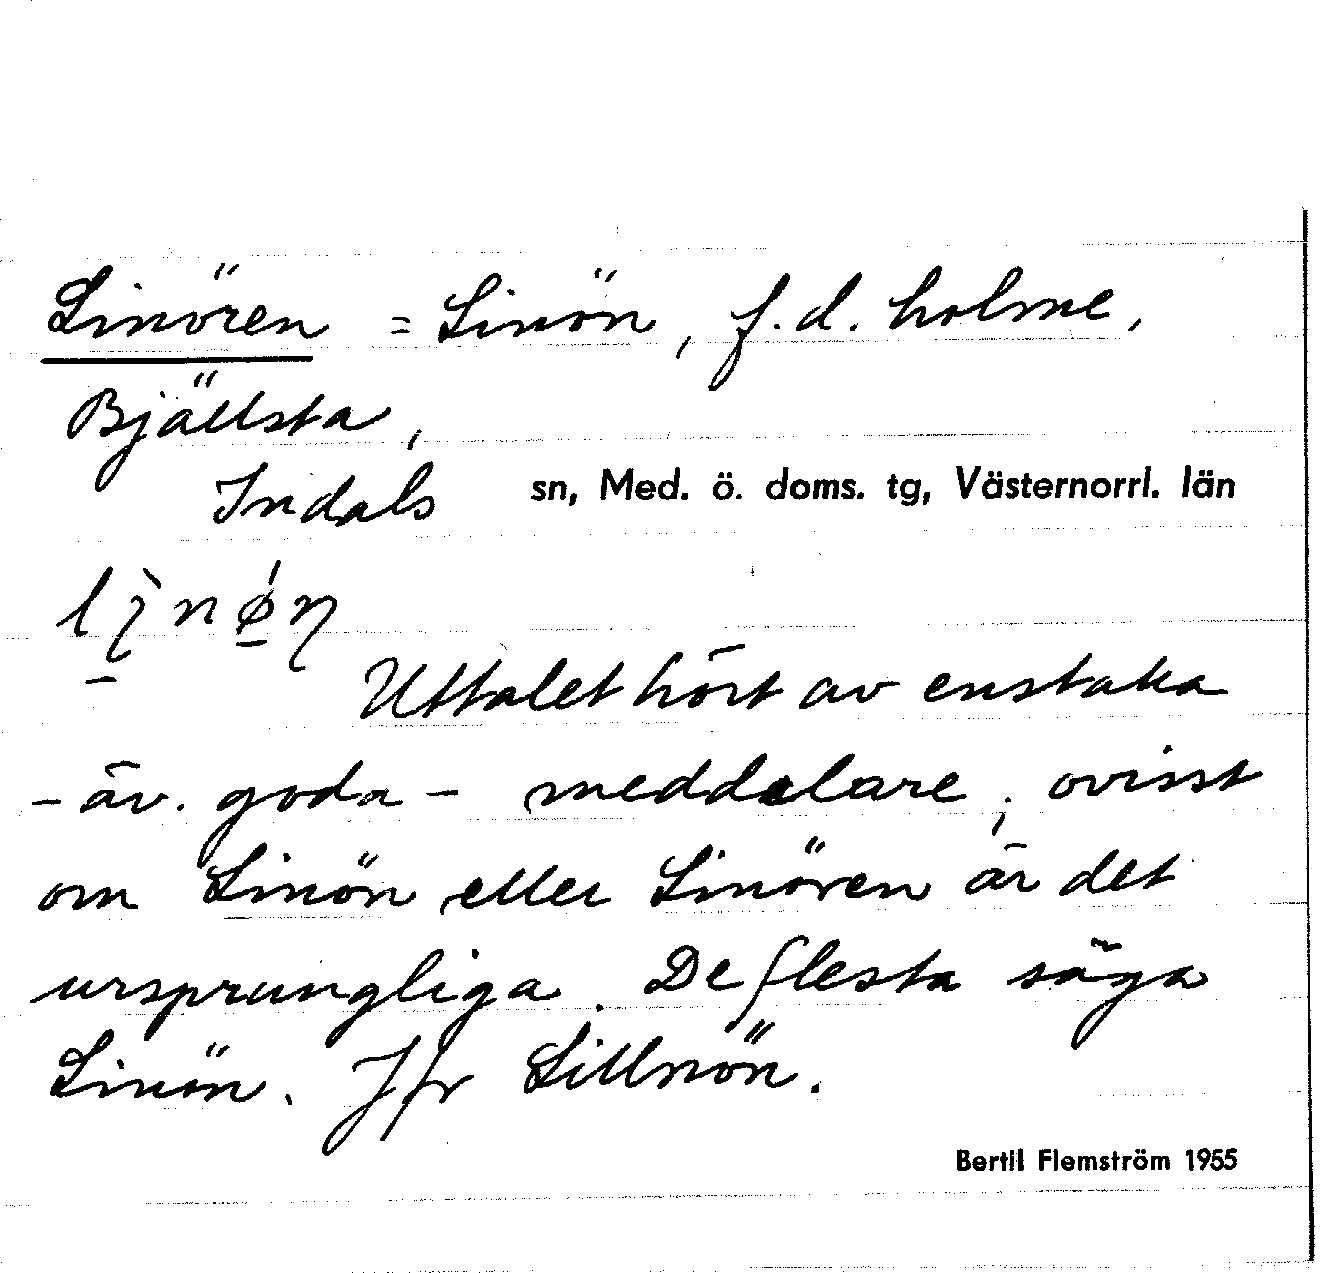 Linören = Linön, f.d. holme,
Bjällsta,
Indals sn, Med. ö. doms. tg, Västernorrl. län
Uttalet hört av enstaka
– äv. goda – meddelare; ovisst
om Linön eller Linören är det
ursprungliga. De flesta säga
Linön. Jfr Lillnön.
Bertil Flemström 1955